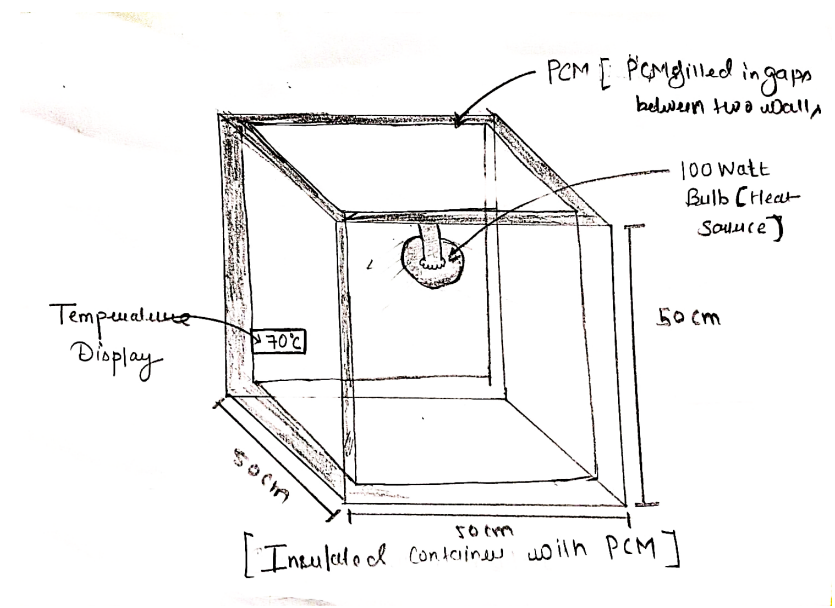 PCM [ PCM filled in gaps
between two walls
100 Watt
Bulb [Heat
Source]
Temperature
Display
70°C
50 cm
50 cm
50 cm
[Insulated Container with PCM]